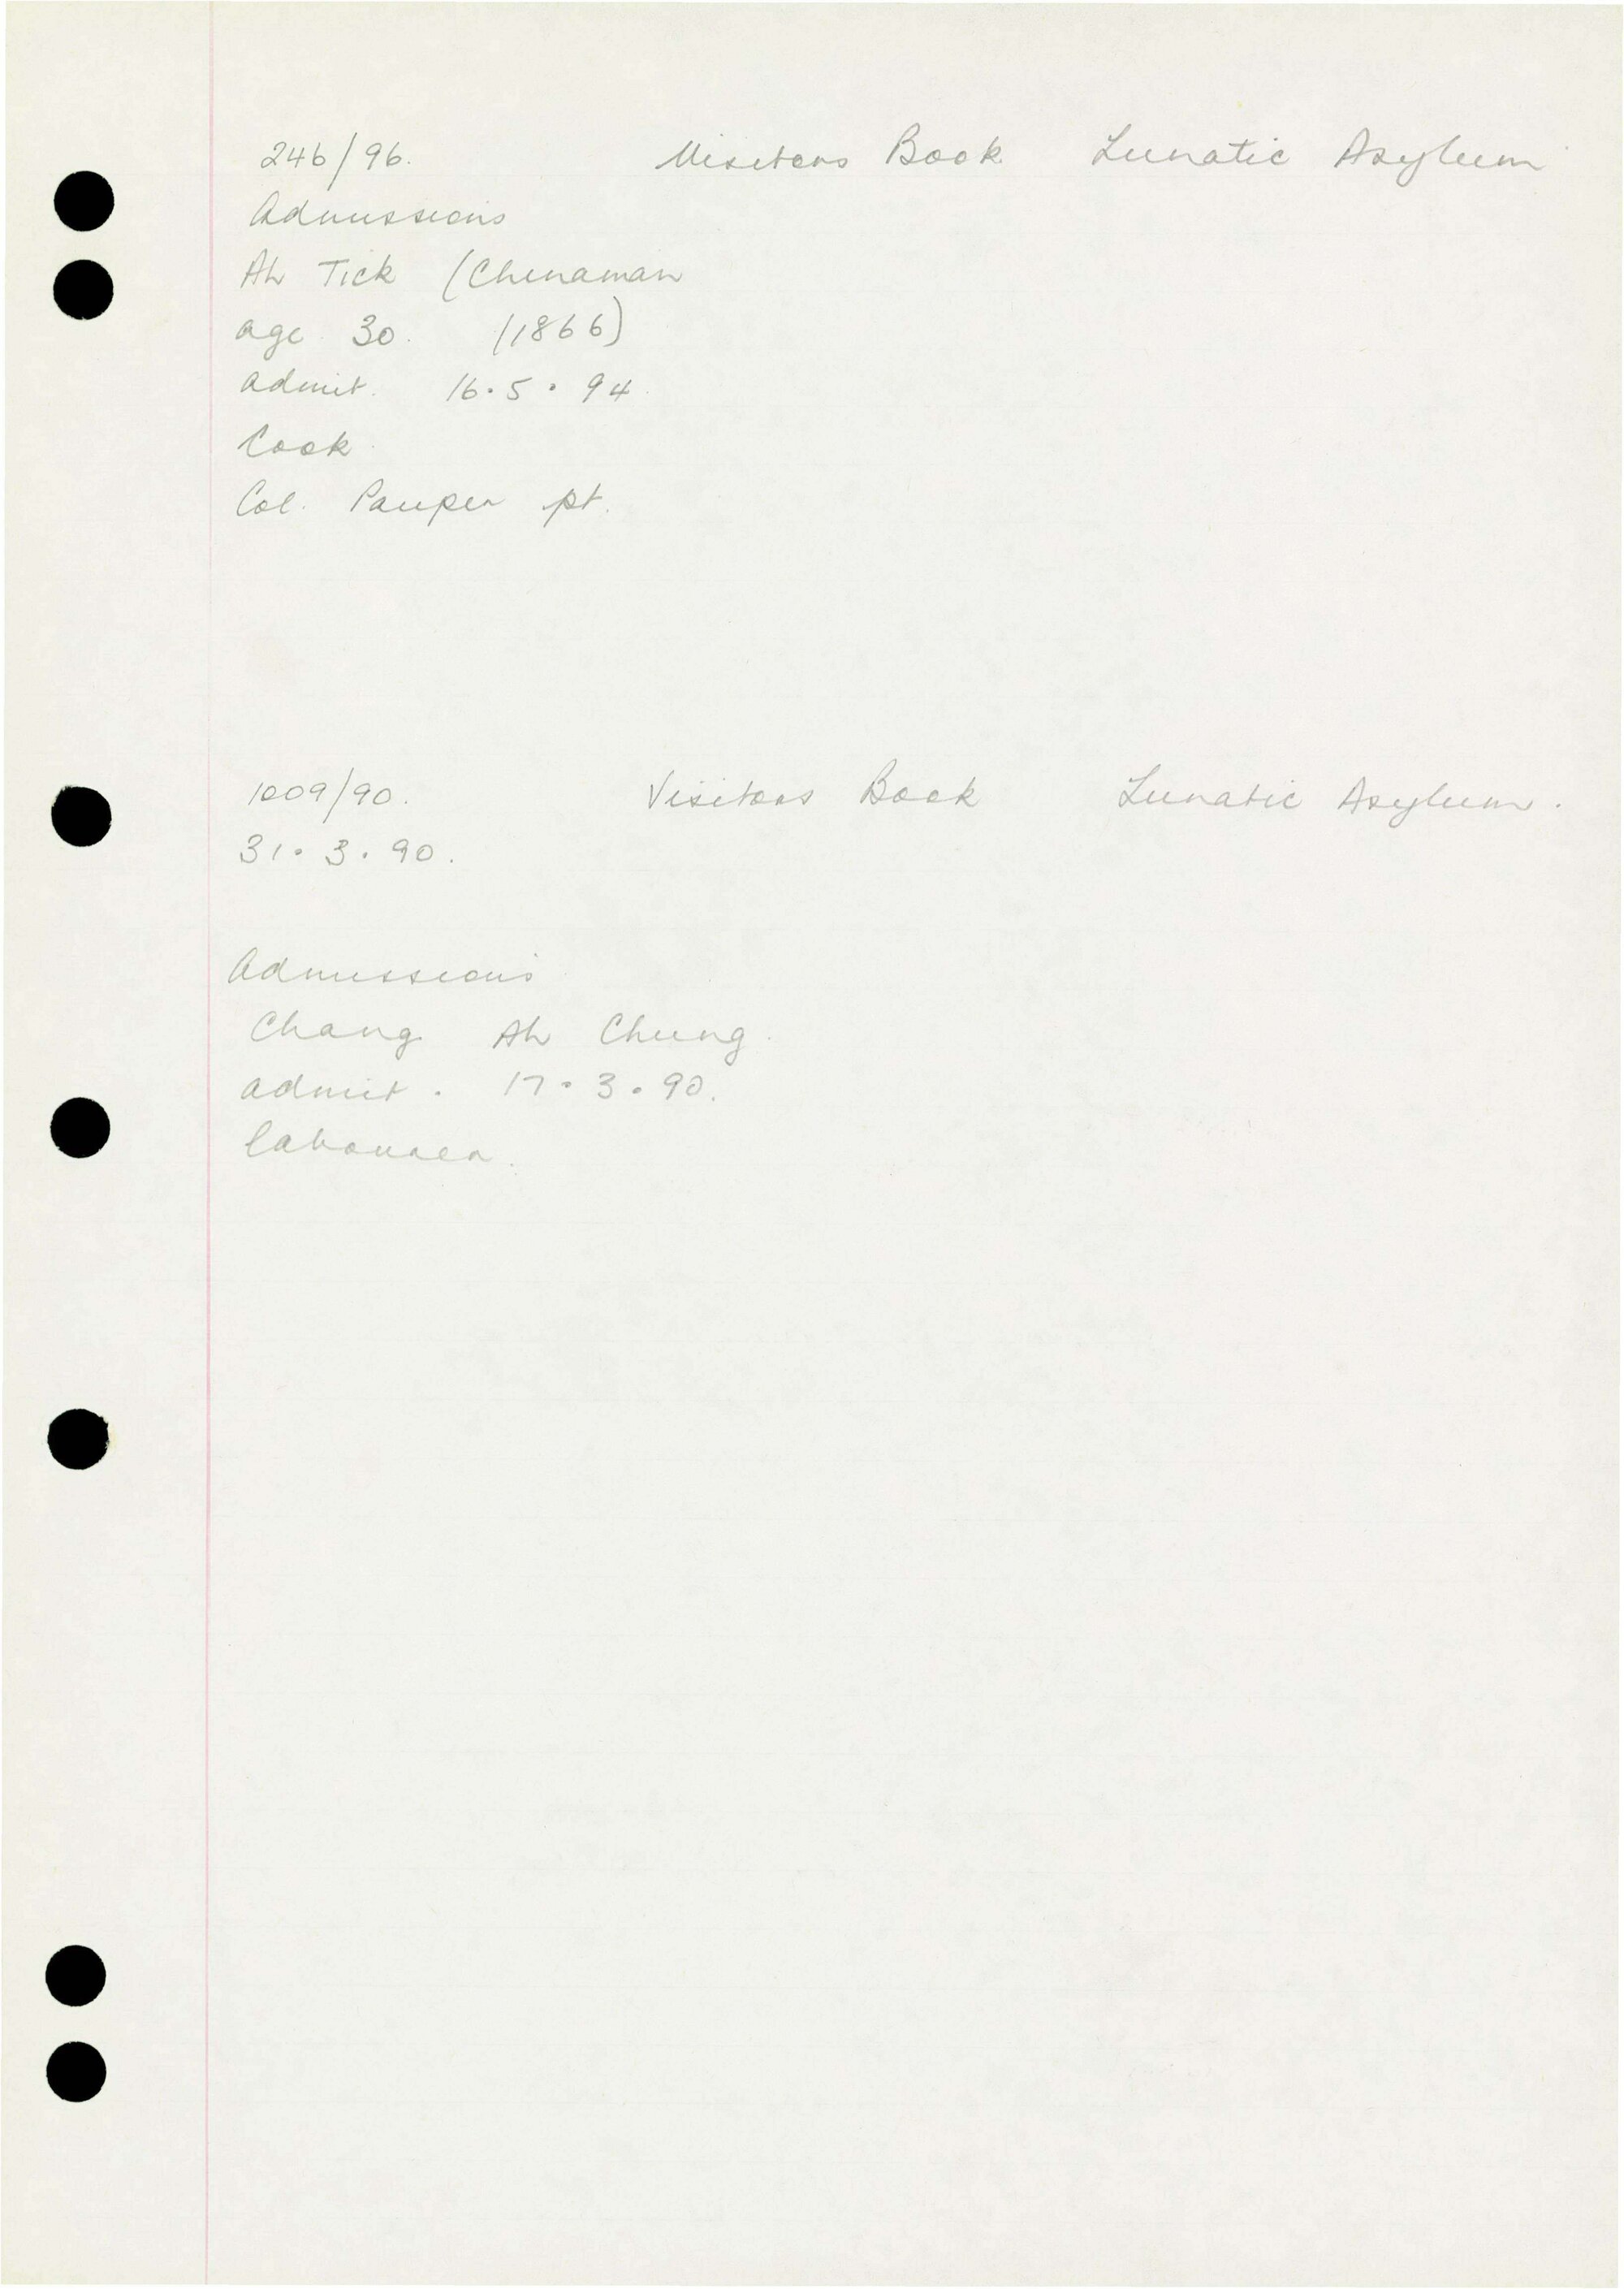 246/96. Visitors Book Lunatic Asylum
Admissions
Ah Tick (Chinaman
age 30. (1866)
admit. 16.5.94
Cook
Col. Pauper pt.
1009/90. Visitors Book Lunatic Asylum.
31.3.90.
Admissions
Chang Ah Chung
admit. 17.3.90.
labourer.